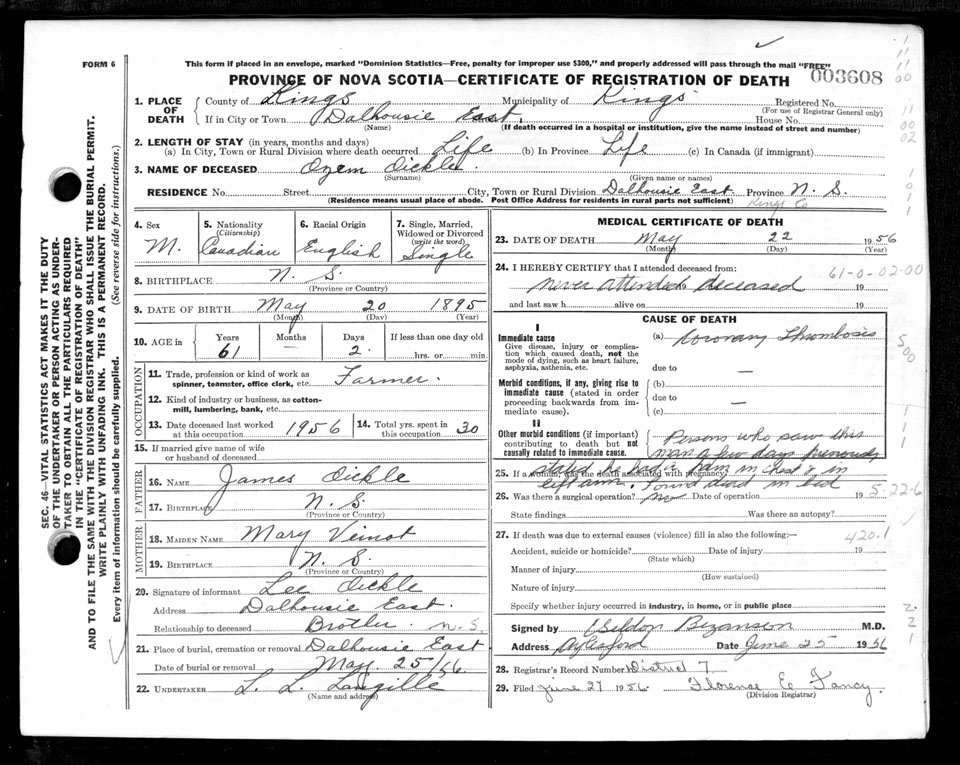 FORM 6
This form if placed in an envelope, marked "Dominion Statistics—Free, penalty for improper use $300," and properly addressed will pass through the mail "FREE"
PROVINCE OF NOVA SCOTIA—CERTIFICATE OF REGISTRATION OF DEATH
003608
1. PLACE OF DEATH
County of Kings Municipality of Kings Registered No.
(For use of Registrar General only)
If in City or Town Dalhousie East House No.
(Name) (If death occurred in a hospital or institution, give the name instead of street and number)
2. LENGTH OF STAY (in years, months and days)
(a) In City, Town or Rural Division where death occurred Life (b) In Province Life (c) In Canada (if immigrant)
3. NAME OF DECEASED Ozem Oickle
(Surname) (Given name or names)
RESIDENCE No. Street City, Town or Rural Division Dalhousie East Province N. S.
(Residence means usual place of abode. Post Office Address for residents in rural parts not sufficient) Kings Co
4. Sex M.
5. Nationality (Citizenship) Canadian
6. Racial Origin English
7. Single, Married, Widowed or Divorced (write the word) Single
8. BIRTHPLACE N. S.
(Province or Country)
9. DATE OF BIRTH May 20 1895
(Month) (Day) (Year)
10. AGE in Years 61 Months — Days 2. If less than one day old hrs. or min.
OCCUPATION
11. Trade, profession or kind of work as spinner, teamster, office clerk, etc. Farmer.
12. Kind of industry or business, as cotton-mill, lumbering, bank, etc.
13. Date deceased last worked at this occupation 1956
14. Total yrs. spent in this occupation 30
15. If married give name of wife or husband of deceased
FATHER
16. NAME James Oickle
17. BIRTHPLACE N. S.
(Province or Country)
MOTHER
18. MAIDEN NAME Mary Veinot
19. BIRTHPLACE N. S.
(Province or Country)
20. Signature of informant Lee Oickle
Address Dalhousie East.
Relationship to deceased Brother N. S.
21. Place of burial, cremation or removal Dalhousie East
Date of burial or removal May 25/56
22. UNDERTAKER L. L. Langille
(Name and address)
MEDICAL CERTIFICATE OF DEATH
23. DATE OF DEATH May 22 1956
(Month) (Day) (Year)
24. I HEREBY CERTIFY that I attended deceased from: 61-0-02-00
never attended deceased 19
and last saw h alive on 19
CAUSE OF DEATH
I
Immediate cause
Give disease, injury or complication which caused death, not the mode of dying, such as heart failure, asphyxia, asthenia, etc.
(a) Coronary Thrombosis
due to —
Morbid conditions, if any, giving rise to immediate cause (stated in order proceeding backwards from immediate cause).
(b)
due to —
(c)
II
Other morbid conditions (if important) contributing to death but not causally related to immediate cause.
Persons who saw this
man a few days previously
stated he had a pain in chest & in
left arm. Found dead in bed
25. If a woman, was the death associated with pregnancy?
26. Was there a surgical operation? no Date of operation 19
5-22-6
State findings Was there an autopsy?
27. If death was due to external causes (violence) fill in also the following:— 420.1
Accident, suicide or homicide? Date of injury 19
(State which)
Manner of injury
(How sustained)
Nature of injury
Specify whether injury occurred in industry, in home, or in public place
Signed by Weldon Bezanson M.D.
Address Aylesford Date June 25 1956
28. Registrar's Record Number District 7
29. Filed June 27 1956. Florence E Fancy.
(Division Registrar)
SEC. 46—VITAL STATISTICS ACT MAKES IT THE DUTY
OF THE UNDERTAKER OR PERSON ACTING AS UNDER-
TAKER TO OBTAIN ALL THE PARTICULARS REQUIRED
IN THE "CERTIFICATE OF REGISTRATION OF DEATH"
AND TO FILE THE SAME WITH THE DIVISION REGISTRAR WHO SHALL ISSUE THE BURIAL PERMIT.
WRITE PLAINLY WITH UNFADING INK. THIS IS A PERMANENT RECORD.
Every item of information should be carefully supplied. (See reverse side for instructions.)